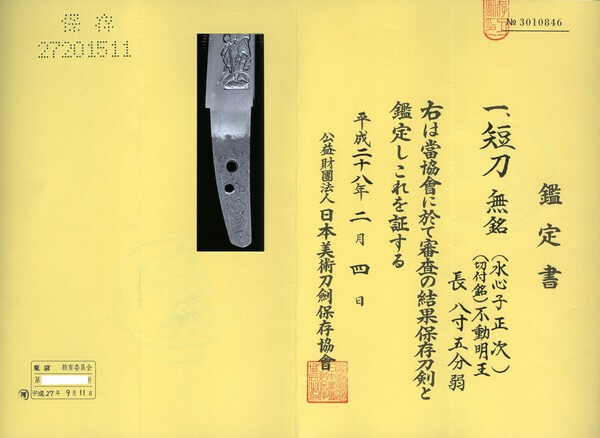 № 3010846
鑑定書
一、短刀 無銘
(水心子正次)
(切付銘)不動明王
長 八寸五分弱
右は當協會に於て審査の結果保存刀劍と
鑑定しこれを証する
平成二十八年 二月 四日
公益財團法人 日本美術刀劍保存協會
保存
27201511
東京 教育委員会
第 号
平成27年 9月 11日